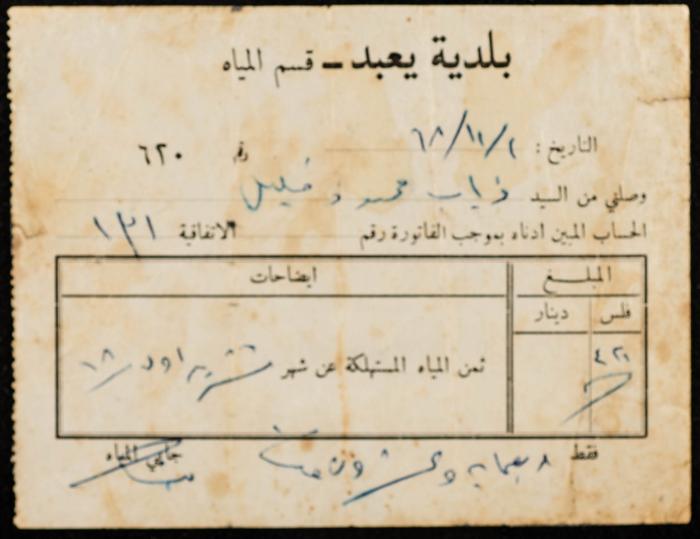 بلدية يعبد - قسم المياه
التاريخ : ٦٨/١١/١
رقم ٦٢٠
وصلني من السيد ذياب محمود خليل
الحساب المبين أدناه بموجب الفاتورة رقم الاتفاقية ١٣١
المبلغ ايضاحات
فلس دينار
٤٢٠ ثمن المياه المستهلكة عن شهر تشرين اول ٦٨
فقط اربعماية وعشرون فلسا
جابي المياه